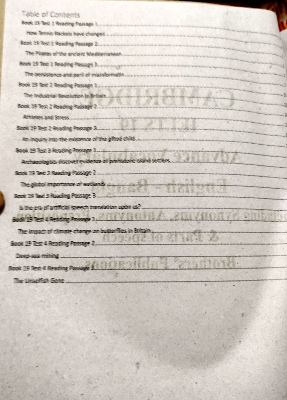 Table of Contents
Book 19 Test 1 Reading Passage 1
How Tennis Rackets have changed
Book 19 Test 1 Reading Passage 2
The Pirates of the ancient Mediterranean
Book 19 Test 1 Reading Passage 3
The persistence and peril of misinformation
Book 19 Test 2 Reading Passage 1
The Industrial Revolution in Britain
Book 19 Test 2 Reading Passage 2
Athletes and Stress
Book 19 Test 2 Reading Passage 3
An inquiry into the existence of the gifted child
Book 19 Test 3 Reading Passage 1
Archaeologists discover evidence of prehistoric island settlers
Book 19 Test 3 Reading Passage 2
The global importance of wetlands
Book 19 Test 3 Reading Passage 3
Is the era of artificial speech translation upon us?
Book 19 Test 4 Reading Passage 1
The impact of climate change on butterflies in Britain
Book 19 Test 4 Reading Passage 2
Deep-sea mining
Book 19 Test 4 Reading Passage
The Unselfish Gene